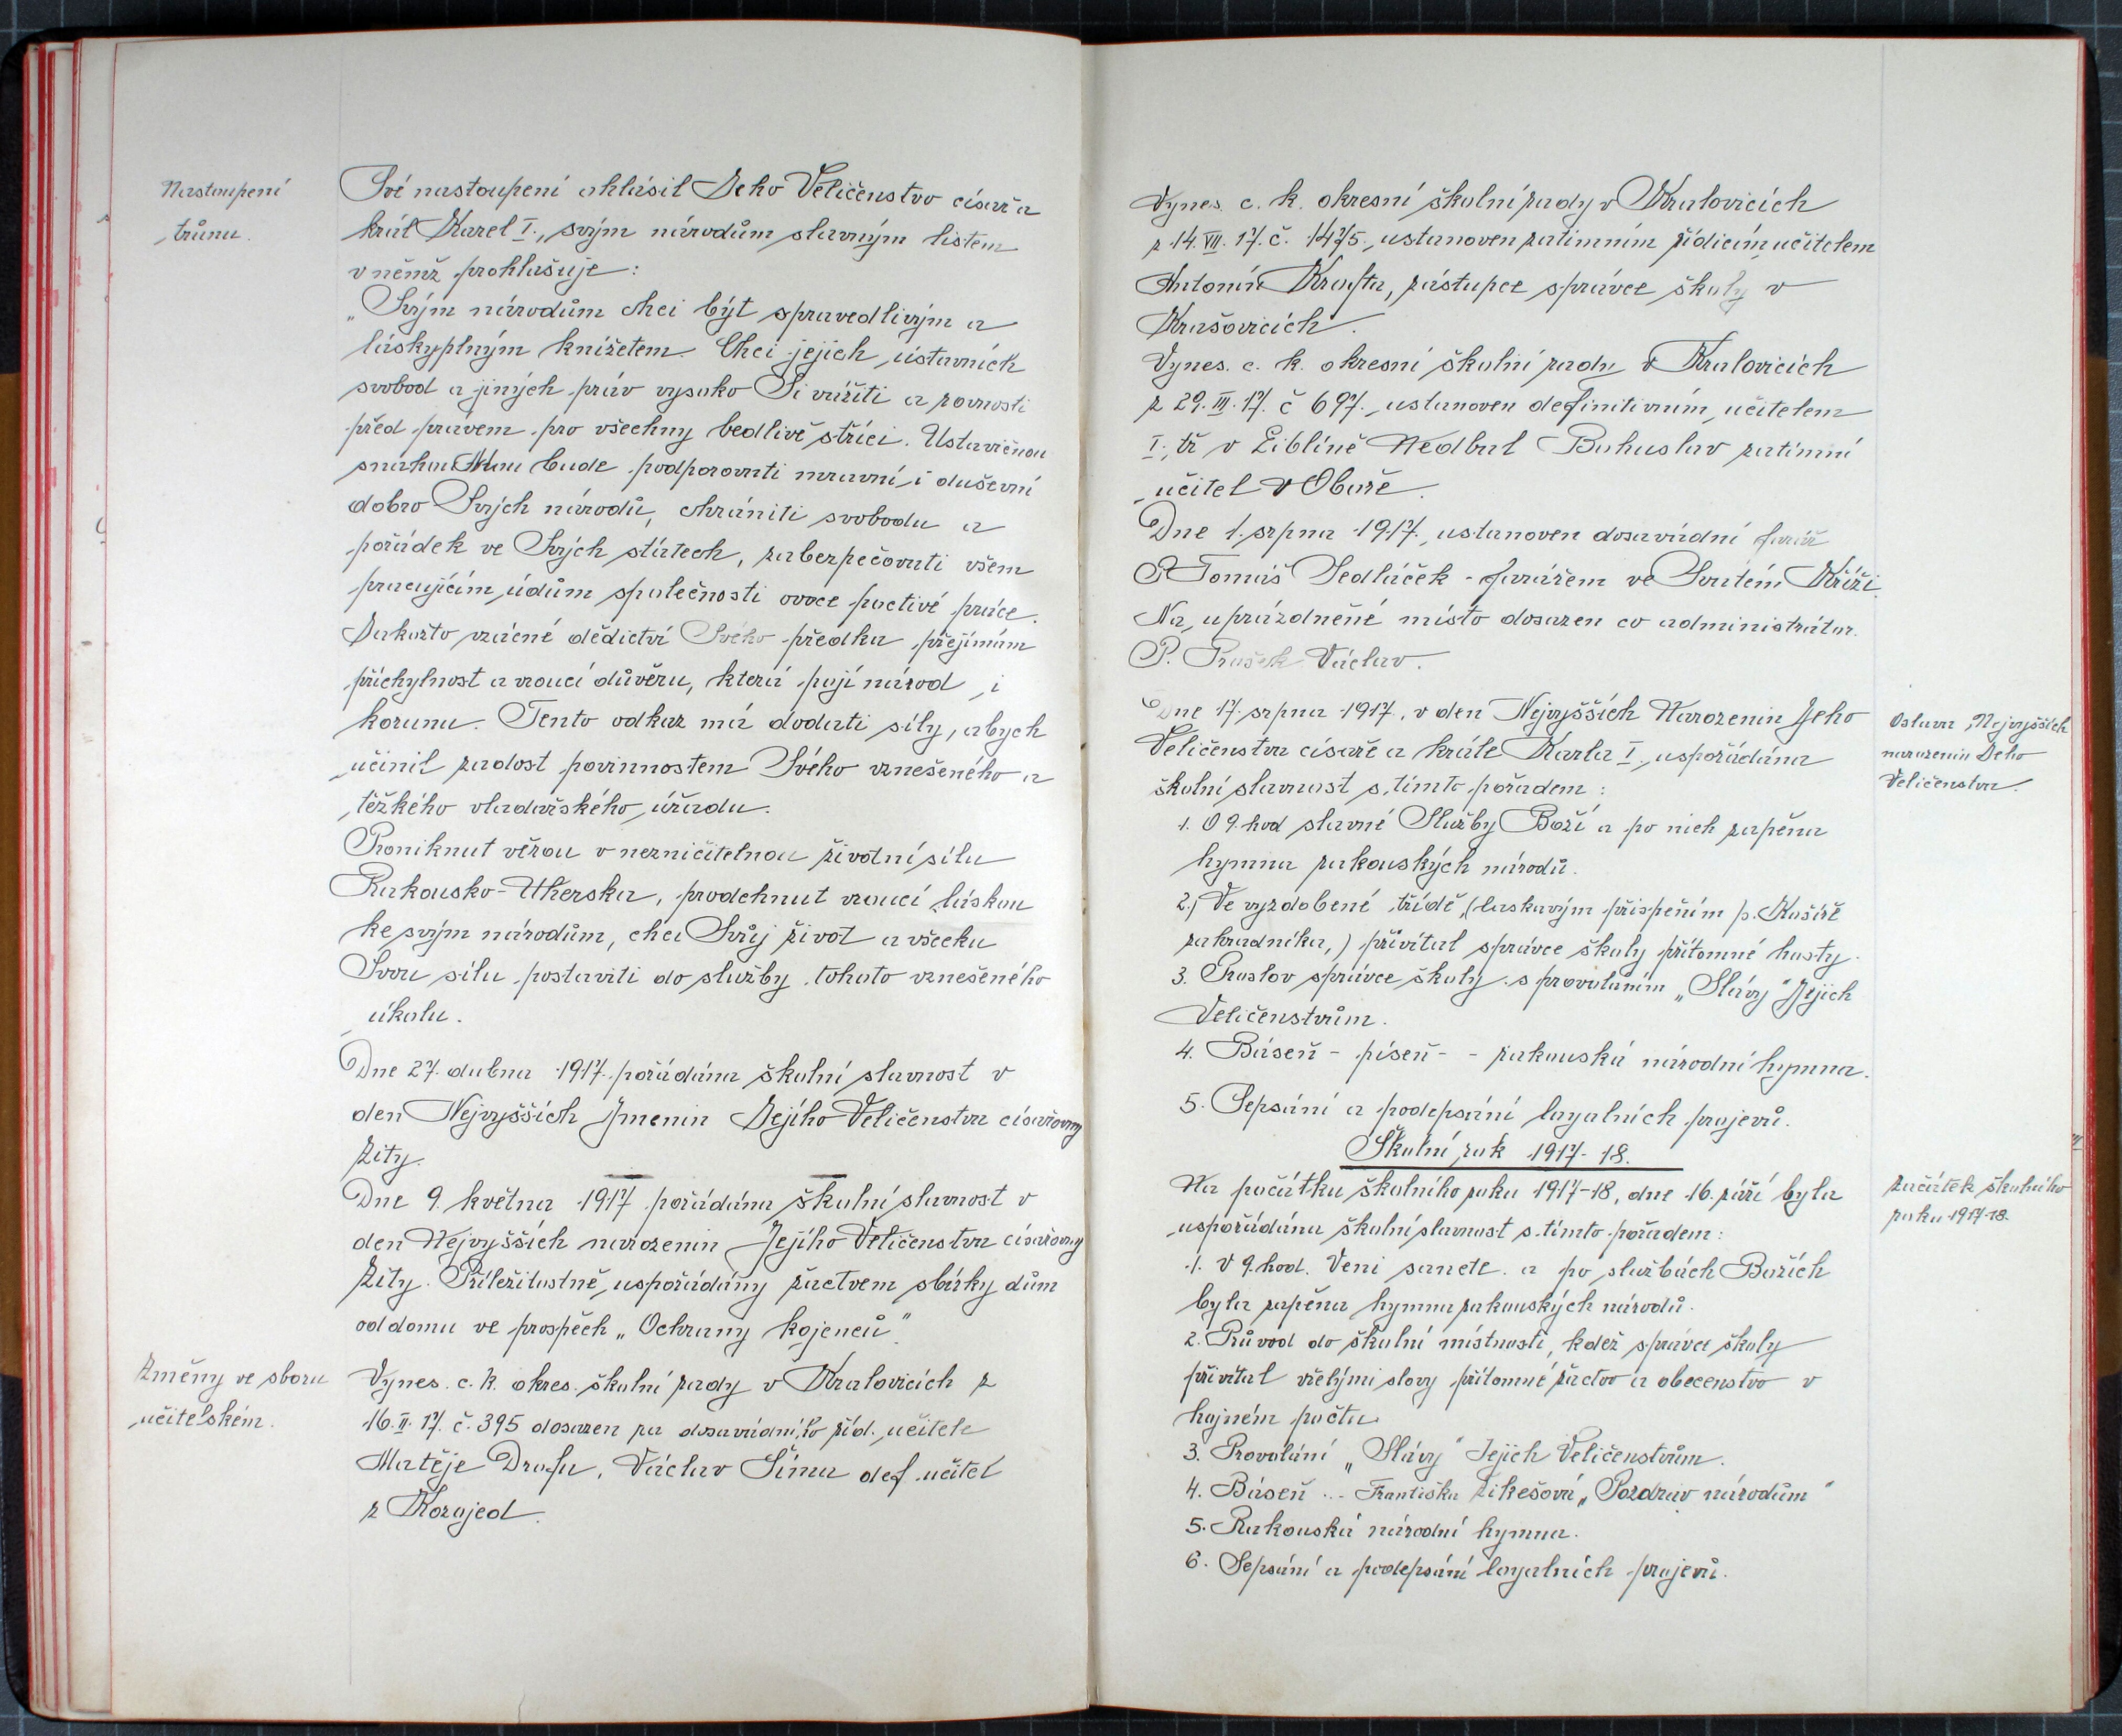 Nastoupení
trůnu.
Své nastoupení ohlásil Jeho Veličenstvo císař a
král Karel I., svým národům slavným listem
v němž prohlašuje:
„Svým národům chci být spravedlivým a
láskyplným knížetem. Chci jejich ústavních
svobod a jiných práv vysoko Si vážiti a rovnosti
před právem pro všechny bedlivě stříci. Ustavičnou
snahou Mou bude podporovati mravní i duševní
dobro Svých národů, chrániti svobodu a
pořádek ve Svých státech, zabezpečovati všem
pracujícím údům společnosti ovoce poctivé práce.
Jakožto vzácné dědictví Svého předka přejímám
příchylnost a vroucí důvěru, která pojí národ i
korunu. Tento odkaz má dodati síly, abych
učinil zadost povinnostem Svého vznešeného a
těžkého vladařského úřadu.
Proniknut věrou v nezničitelnou životní sílu
Rakousko-Uherska, prodchnut vroucí láskou
ke svým národům, chci Svůj život a všecku
Svou sílu postaviti do služby tohoto vznešeného
úkolu.
Dne 27. dubna 1917. pořádána školní slavnost v
den Nejvyšších Jmenin Jejího Veličenstva císařovny
Zity.
Dne 9. května 1917 pořádána školní slavnost v
den Nejvyšších narozenin Jejího Veličenstva císařovny
Zity. Příležitostně uspořádány žactvem sbírky dům
od domu ve prospěch „Ochrany kojenců."
Změny ve sboru
učitelském.
Vynes. c. k. okres. školní rady v Kralovicích z
16. II. 17. č. 395 dosazen za dosavádního říd. učitele
Matěje Drofu, Václav Šíma def. učitel
z Kozojed.
Vynes. c. k. okresní školní rady v Kralovicích
z 14. VII. 17. č. 1475., ustanoven zatimním řídicím učitelem
Antonín Krofta, zástupce správce školy v
Krašovicích.
Vynes. c. k. okresní školní rady v Kralovicích
z 29. III. 17. č 697., ustanoven definitivním učitelem
I. tř v Liblíně Nedbal Bohuslav zatimní
učitel v Oboře.
Dne 1. srpna 1917., ustanoven dosavádní farář
P. Tomáš Sedláček - farářem ve Svatém Kříži.
Na uprázdněné místo dosazen co administrátor.
P. Prušek Václav.
Dne 17. srpna 1917., v den Nejvyšších Narozenin Jeho
Veličenstva císaře a krále Karla I., uspořádána
školní slavnost s tímto pořadem:
Oslava Nejvyšších
narozenin Jeho
Veličenstva.
1. O 9. hod slavné Služby Boží a po nich zapěna
hymna rakouských národů.
2., Ve vyzdobené třídě, (laskavým přispěním p. Košíře
zahradníka,) přivítal správce školy přítomné hosty.
3. Proslov správce školy s provoláním „Slávy" Jejich
Veličenstvům.
4. Báseň - píseň - - rakouská národní hymna.
5. Sepsání a podepsání loyalních projevů.
Školní rok 1917-18.
Na počátku školního roku 1917-18, dne 16. září byla
uspořádána školní slavnost s tímto pořadem:
Začátek školního
roku 1917-18.
1. V 9. hod. Veni sancte. a po službách Božích
byla zapěna hymna rakouských národů.
2. Průvod do školní místnosti, kdež správce školy
přivítal vřelými slovy přítomné žactvo a obecenstvo v
hojném počtu.
3. Provolání „Slávy" Jejich Veličenstvům.
4. Báseň .- Františka Zikešová „Pozdrav národům"
5. Rakouská národní hymna.
6. Sepsání a podepsání loyalních projevů.